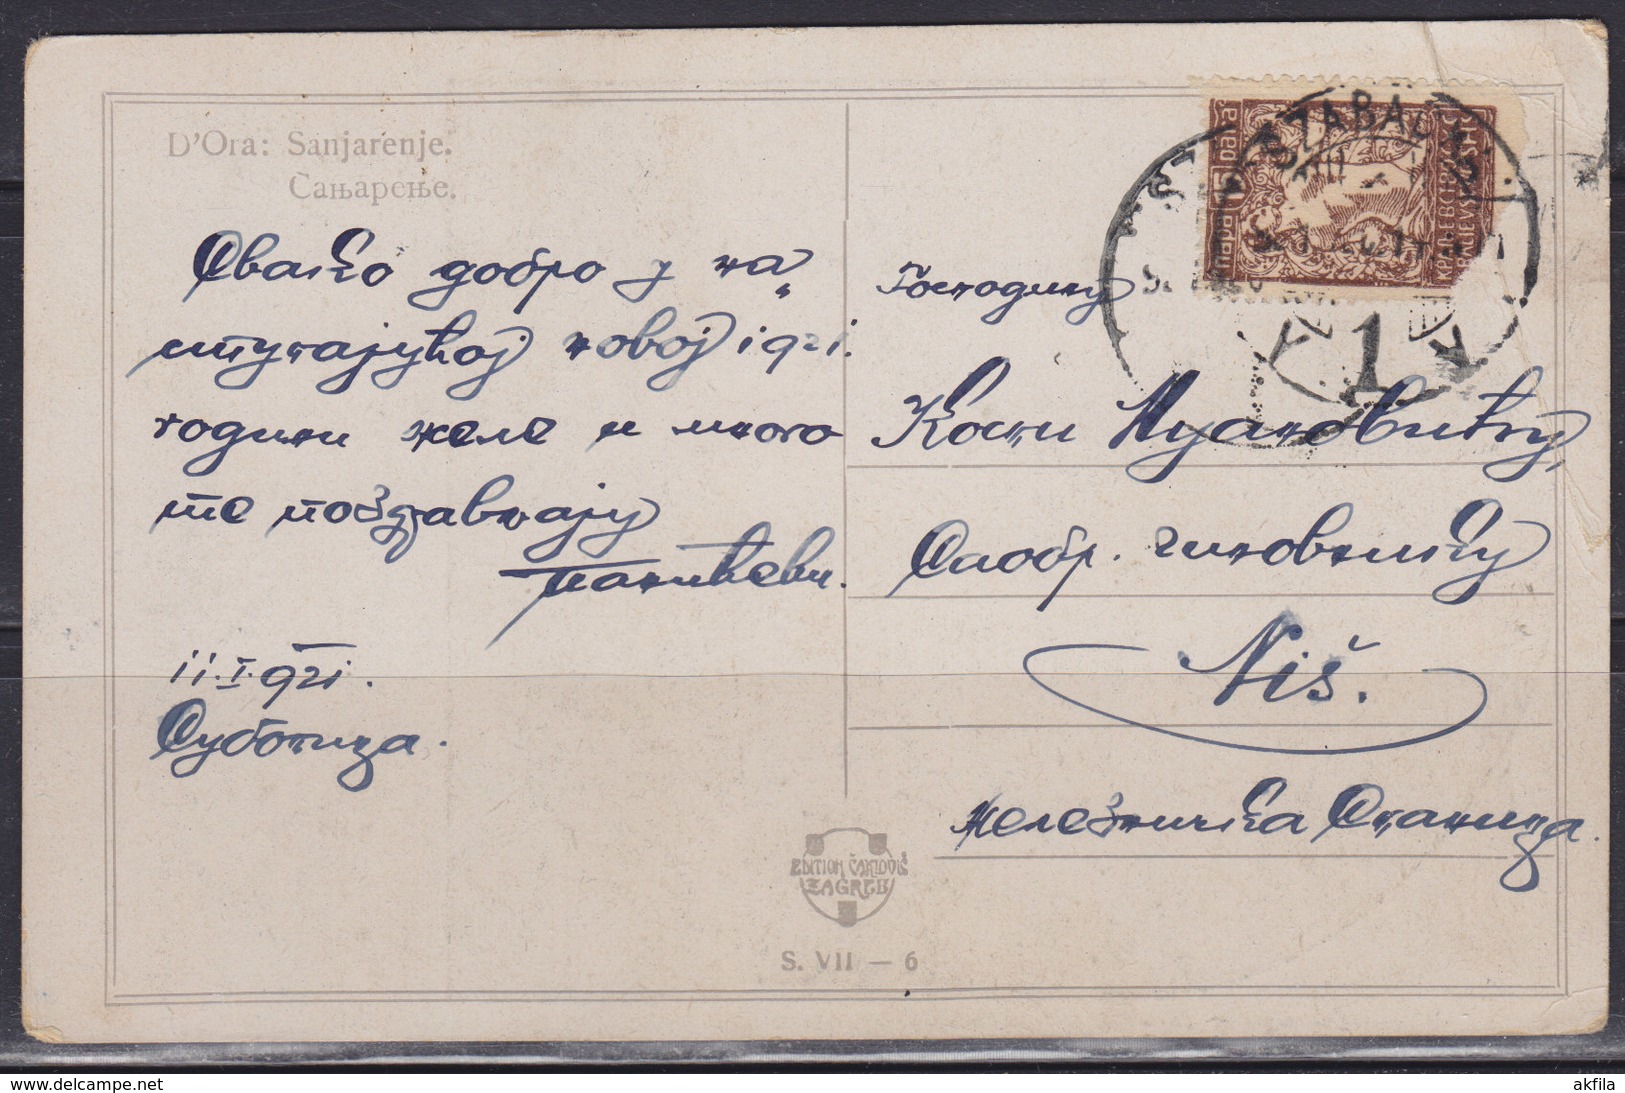 D'Ora: Sanjarenje.
Сањарење.
Свако добро у на„
ступајућој новој 1921.
години желе и много
те поздрављају
11.I.921.
Суботица.
Господину
Кости
Саобр. чиновнику
Niš.
Железничка Станица.
EDITION ČAKLOVIĆ
ZAGREB
S. VII — 6
SZABADKA
1
15 para
пара
delcampe.net
akfila